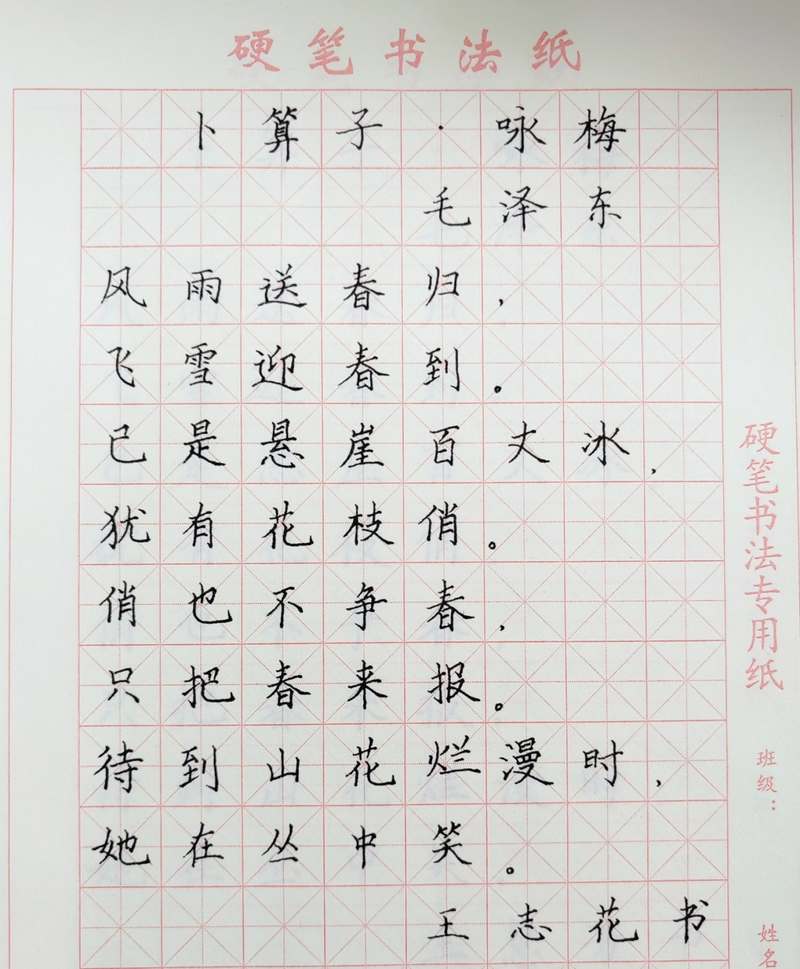 硬笔书法纸
卜算子·咏梅
毛泽东
风雨送春归，
飞雪迎春到。
已是悬崖百丈冰，
犹有花枝俏。
俏也不争春，
只把春来报。
待到山花烂漫时，
她在丛中笑。
王志花书
硬笔书法专用纸
班级：
姓名